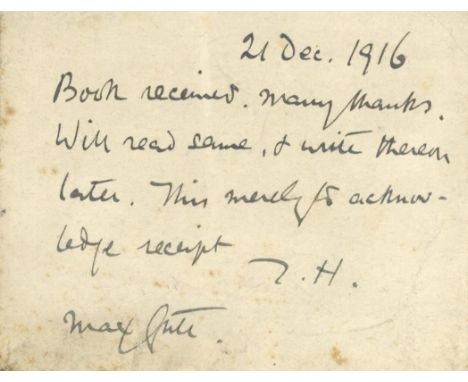 21 Dec. 1916
Book received. Many thanks.
Will read same, & write thereon
later. This merely to acknow-
ledge receipt
T. H.
Max Gate.